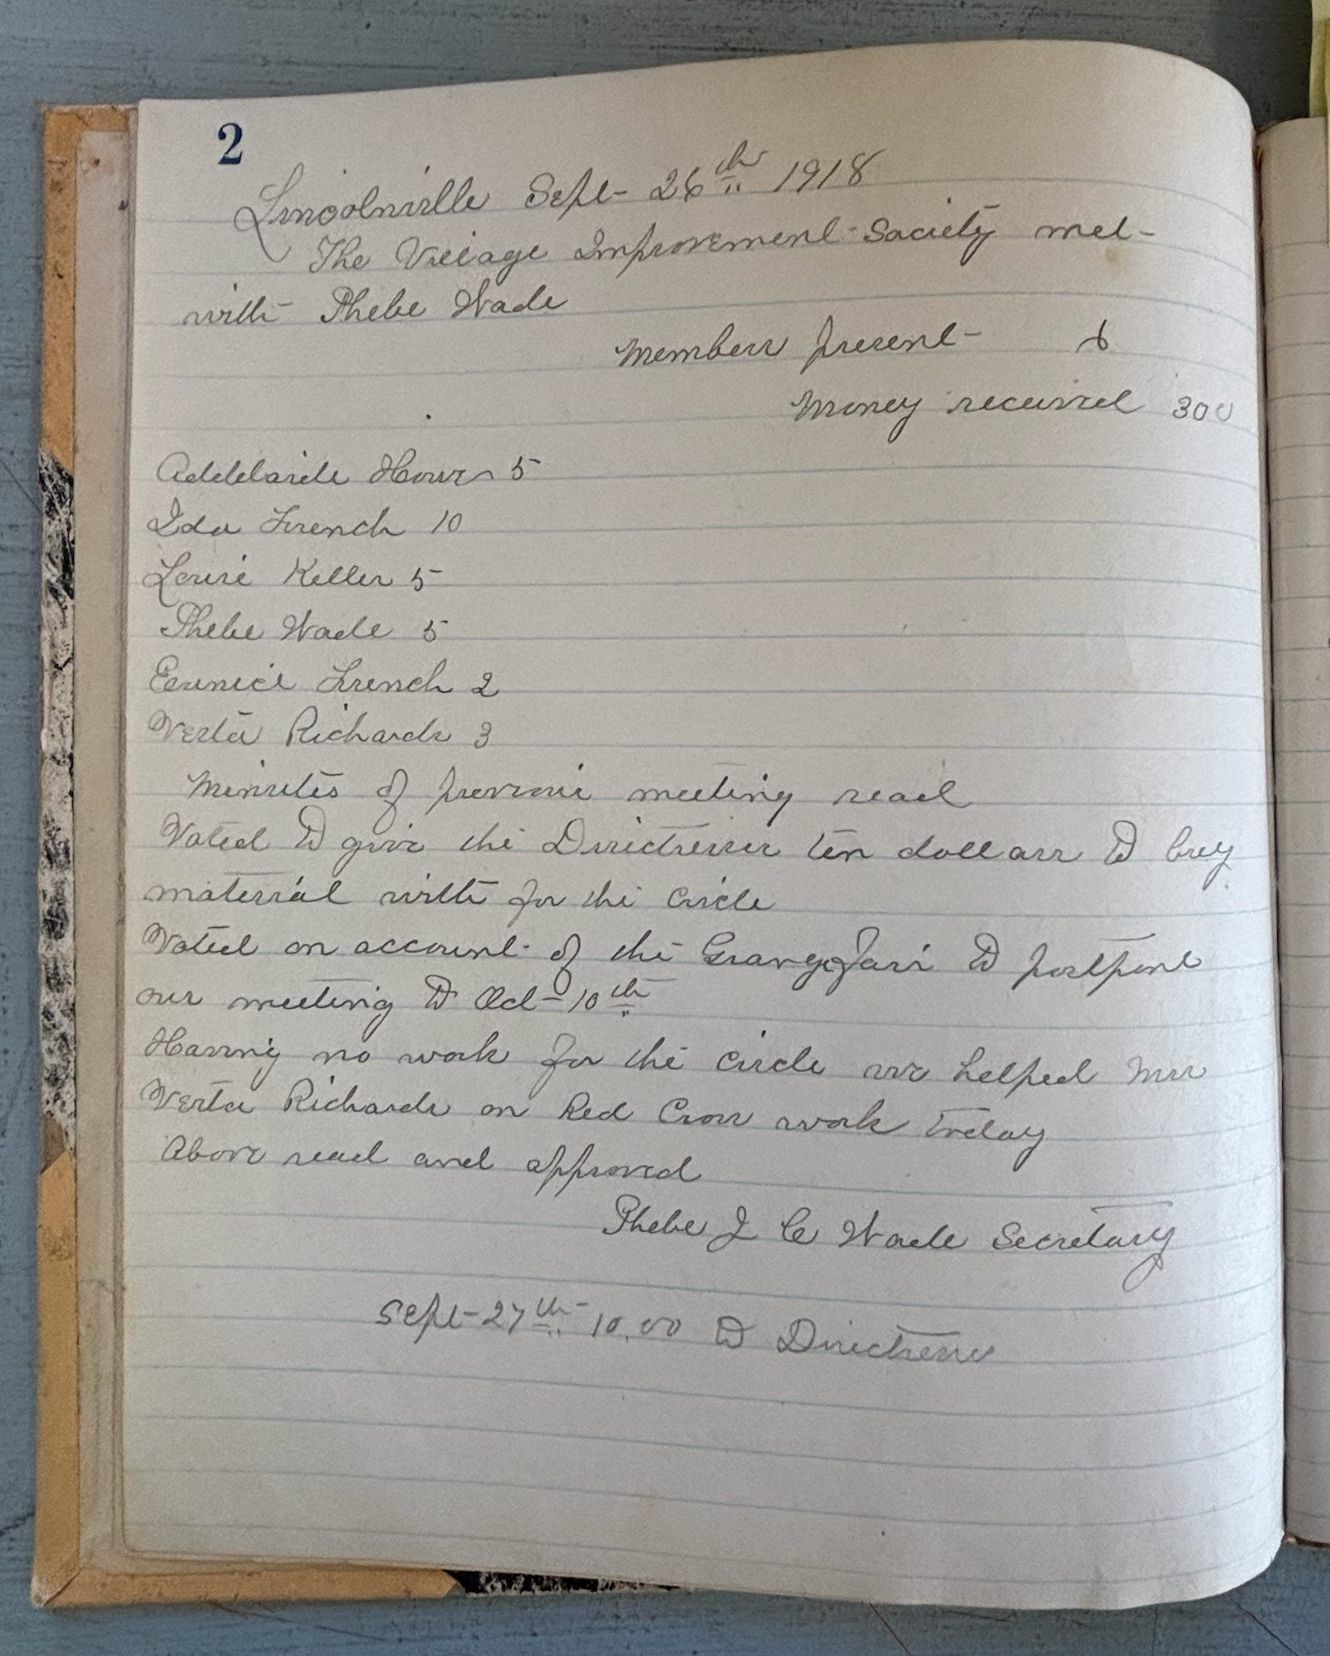 2
Lincolnville Sept- 26th 1918
The Village Improvement Society met-
with Phebe Wade
Members present- 6
Money received 300
Addelaide Howe 5
Ida French 10
Louise Keller 5
Phebe Wade 5
Eunice French 2
Verta Richards 3
Minutes of previous meeting read
Voted to give the Directresses ten dollars to buy
material with for the circle
Voted on account of the Grange fair to postpone
our meeting to Oct- 10th
Having no work for the circle we helped Mrs
Verta Richards on Red Cross work today
Above read and approved
Phebe J C Wade Secretary
Sept- 27th 10.00 to Directress